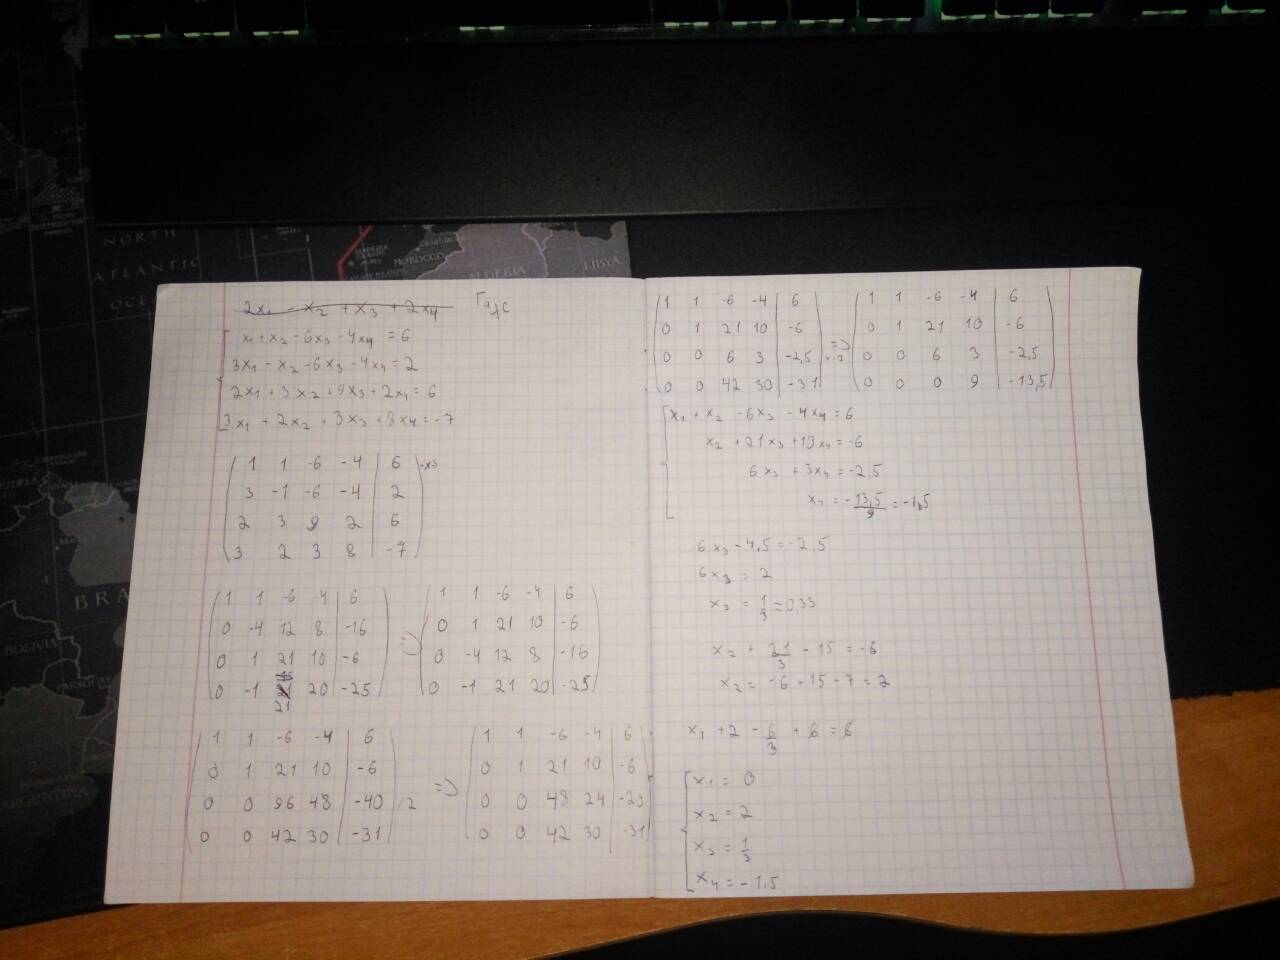 NORTH
ATLANTIC
OCE
MOROCCO
ALGERIA
LIBYA
BRA
BOLIVIA
PARAGUAY
ARGENTINA
2x₁ - x₂ + x₃ + 2x₄
Гаусс
x₁ + x₂ - 6x₃ - 4x₄ = 6
3x₁ - x₂ - 6x₃ - 4x₄ = 2
2x₁ + 3x₂ + 9x₃ + 2x₄ = 6
3x₁ + 2x₂ + 3x₃ + 8x₄ = -7
1 1 -6 -4 | 6
3 -1 -6 -4 | 2
2 3 9 2 | 6
3 2 3 8 | -7
1 1 -6 -4 | 6
0 -4 12 8 | -16
0 1 21 10 | -6
0 -1 21 20 | -25
=>
1 1 -6 -4 | 6
0 1 21 10 | -6
0 -4 12 8 | -16
0 -1 21 20 | -25
1 1 -6 -4 | 6
0 1 21 10 | -6
0 0 96 48 | -40 :2
0 0 42 30 | -31
=>
1 1 -6 -4 | 6
0 1 21 10 | -6
0 0 48 24 |
0 0 42 30 | -31
1 1 -6 -4 | 6
0 1 21 10 | -6
0 0 6 3 | -2,5
0 0 42 30 | -31
=>
1 1 -6 -4 | 6
0 1 21 10 | -6
0 0 6 3 | -2,5
0 0 0 9 | -13,5
x₁ + x₂ - 6x₃ - 4x₄ = 6
x₂ + 21x₃ + 10x₄ = -6
6x₃ + 3x₄ = -2,5
x₄ = -13,5/9 = -1,5
6x₃ - 4,5 = -2,5
6x₃ = 2
x₃ = 1/3 = 0,33
x₂ + 21/3 - 15 = -6
x₂ = -6 + 15 - 7 = 2
x₁ + 2 - 6/3 + 6 = 6
x₁ = 0
x₂ = 2
x₃ = 1/3
x₄ = -1,5